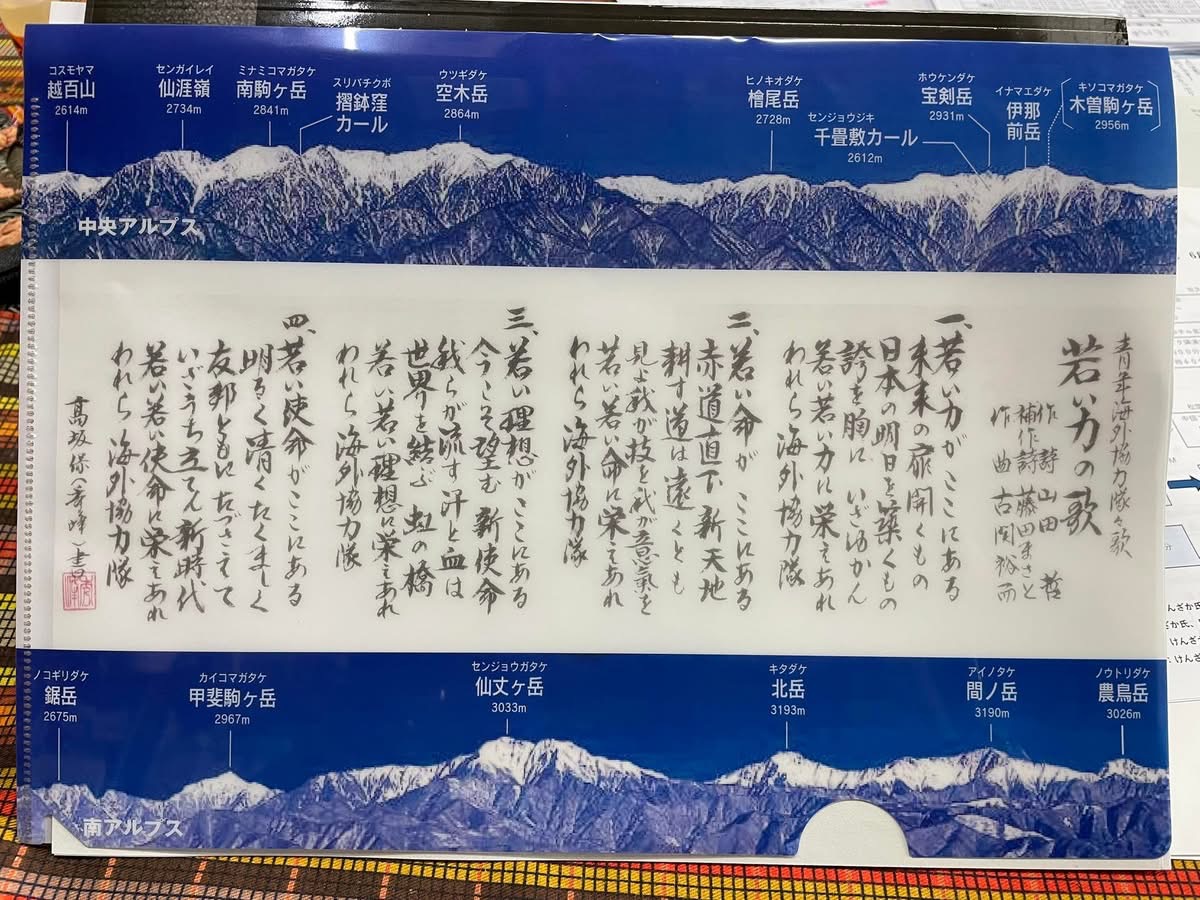 コスモヤマ
越百山
2614m
センガイレイ
仙涯嶺
2734m
ミナミコマガタケ
南駒ヶ岳
2841m
スリバチクボ
摺鉢窪
カール
ウツギダケ
空木岳
2864m
ヒノキオダケ
檜尾岳
2728m
センジョウジキ
千畳敷カール
2612m
ホウケンダケ
宝剣岳
2931m
イナマエダケ
伊那
前岳
キソコマガタケ
木曽駒ヶ岳
2956m
中央アルプス
青年海外協力隊々歌
若い力の歌
作詩 山田 哲
補作詩 藤田まさと
作曲 古関裕而
一、若い力がここにある
未来の扉開くもの
日本の明日を築くもの
誇を胸に いざゆかん
若い若い力に栄えあれ
われら海外協力隊
二、若い命が ここにある
赤道直下新天地
耕す道は遠くとも
見よ我が技を我が意氣を
若い若い命に栄えあれ
われら海外協力隊
三、若い理想が ここにある
今こそ望む 新使命
我らが流す汗と血は
世界を結ぶ 虹の橋
若い若い理想に栄えあれ
われら海外協力隊
四、若い使命がここにある
明るく清くたくましく
友邦ともにたづさえて
いざうち立てん新時代
若い若い使命に栄えあれ
われら海外協力隊
髙坂保(孝峰)書
ノコギリダケ
鋸岳
2675m
カイコマガタケ
甲斐駒ヶ岳
2967m
センジョウガタケ
仙丈ヶ岳
3033m
キタダケ
北岳
3193m
アイノタケ
間ノ岳
3190m
ノウトリダケ
農鳥岳
3026m
南アルプス